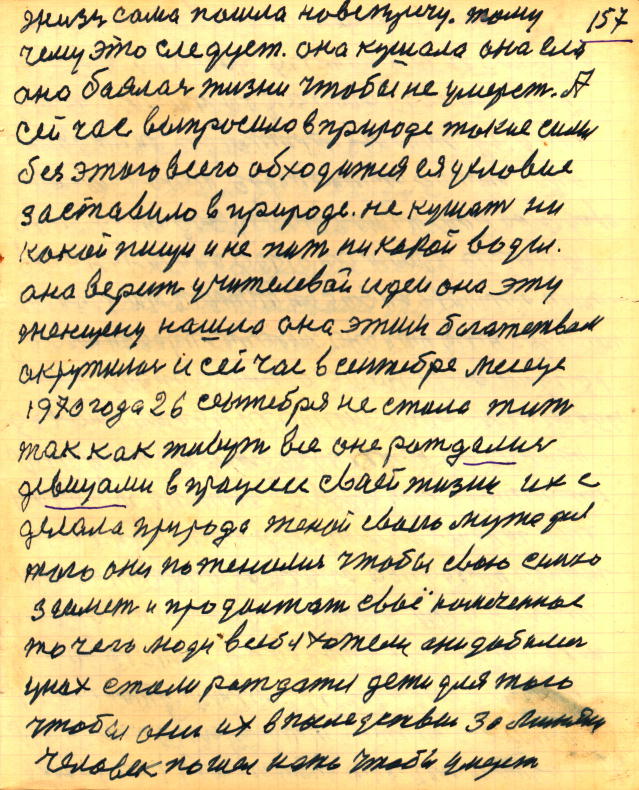 жизь сама пошла новстричу. тому 157
чему это следует. она кушала она ела
она баялася жизни чтобы не умерет. А
сей час выпросило в природе такие силы
без этого всего обходится ея условие
заставило в природе. не кушат ни
какой пищи и не пит никакой воды.
она верит учителевай идеи она эту
женщену нашла она этим богатствам
окружила и сей час в сентебре месеце
1970 года 26 сентебря не стала жит
так как живут все оне рождалися
девицами в процессе своей жизни их с
делала природа женой своего мужа для
того они поженилися чтобы свою силою
и продолжат своё намеченное
то чего люди в себя хотели они добился
у них стали рождатся дети для того
чтобы они их впоследствии заменили
человек пошел на чтобы умерет